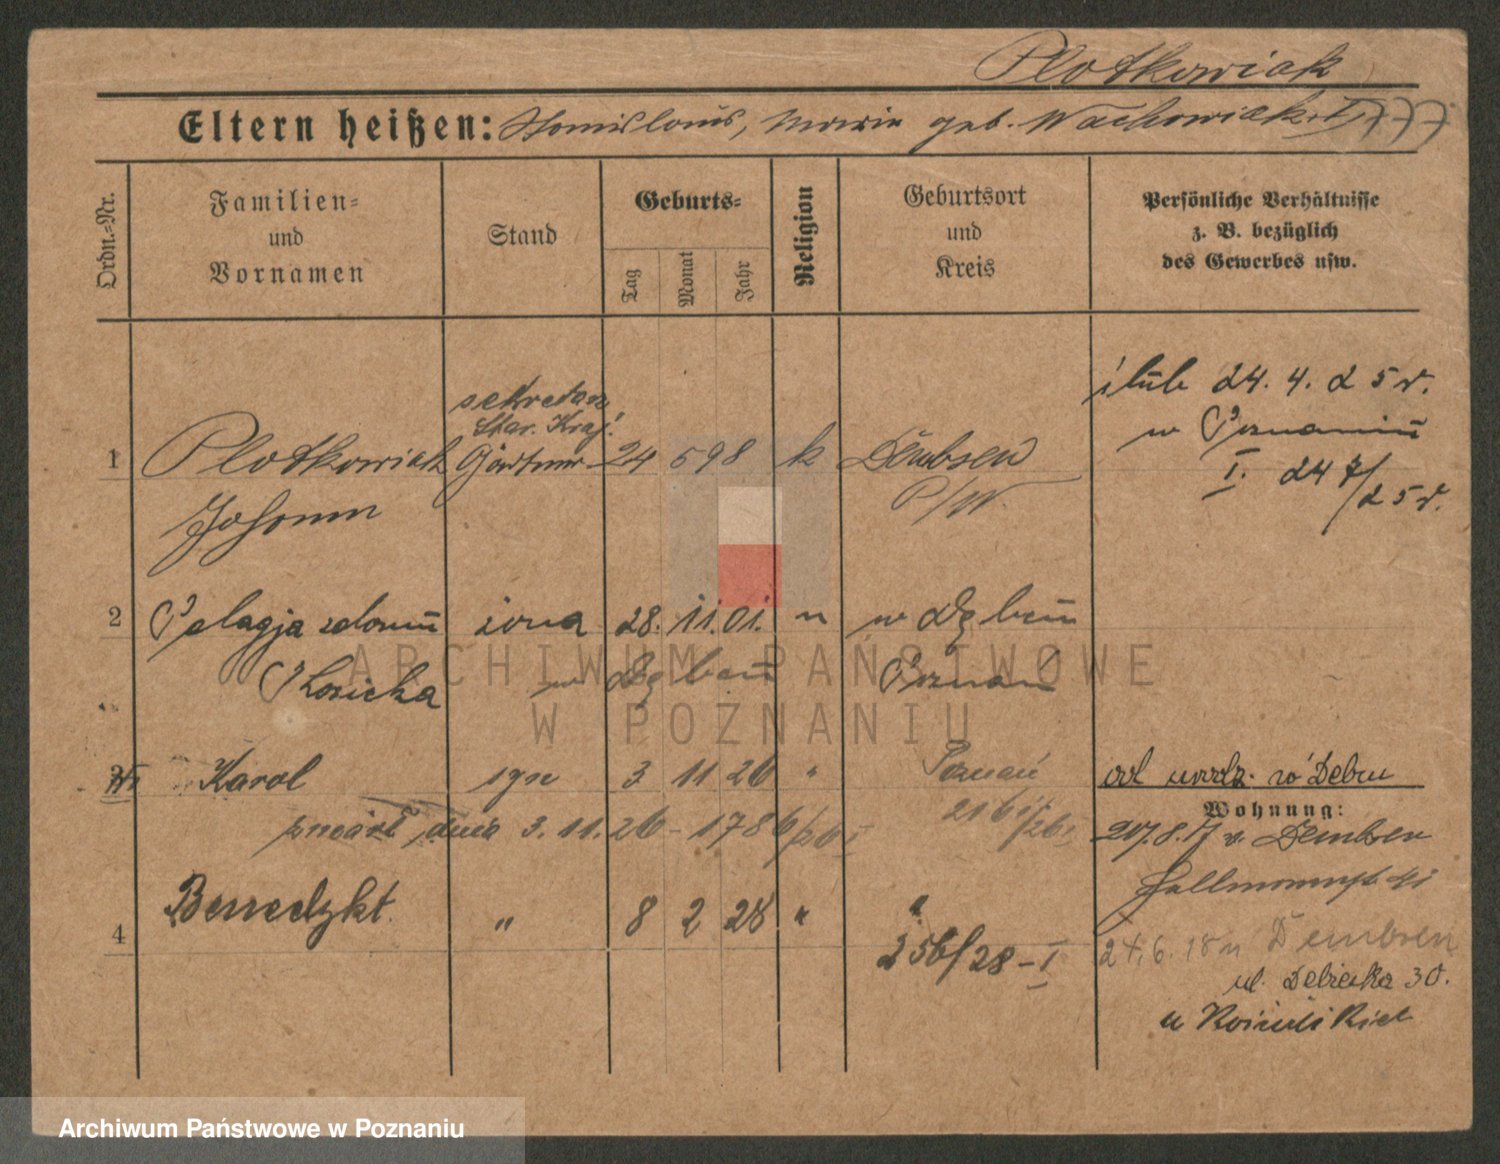 Plotkowiak
Eltern heißen: Stanislaus, Maria geb. Wachowiak
Ordn.=Nr.
Familien= und Vornamen
Stand
Geburts=
Tag Monat Jahr
Religion
Geburtsort und Kreis
Persönliche Verhältnisse z. B. bezüglich des Gewerbes usw.
sekretarz
Star. Kraj.
1 Plotkowiak Gärtner 24 5 98 k Dembsen
Johann P/W.
ślub 24. 4. 25 r.
w Poznaniu
I. 247/25 r.
2 Pelagja z domu żona 28. 11. 01. " w Dębcu
Kosicka w Dębcu Poznań
3 Karol syn 3 11 26 " Poznań
od urodz. w Debcu
dnia 3. 11. 26 - 1786/26 I
Wohnung:
20/8. 17 v. Dembsen
4 Benedykt. " 8 2 28 " "
256/28 - I
24. 6. 18 n Dembsen
ul. Debiecka 30.
u
ARCHIWUM PAŃSTWOWE
W POZNANIU
Archiwum Państwowe w Poznaniu